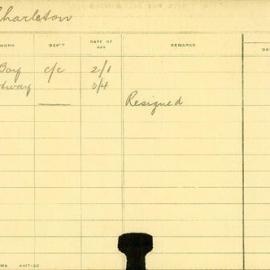 Charleton
DEP'T DATE OF REMARKS
Boy c/c 2/1
3/4
Resigned